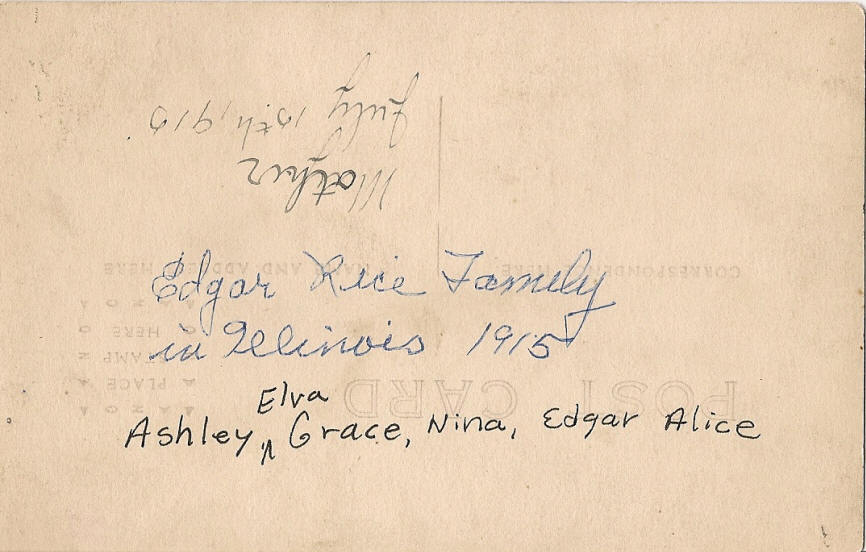 Mother
July 15th, 1915
Edgar Rice Family
in Illinois 1915
Elva
Ashley, ^ Grace, Nina, Edgar Alice
POST CARD
PLACE
STAMP
HERE
CORRESPONDENCE HERE
NAME AND ADDRESS HERE